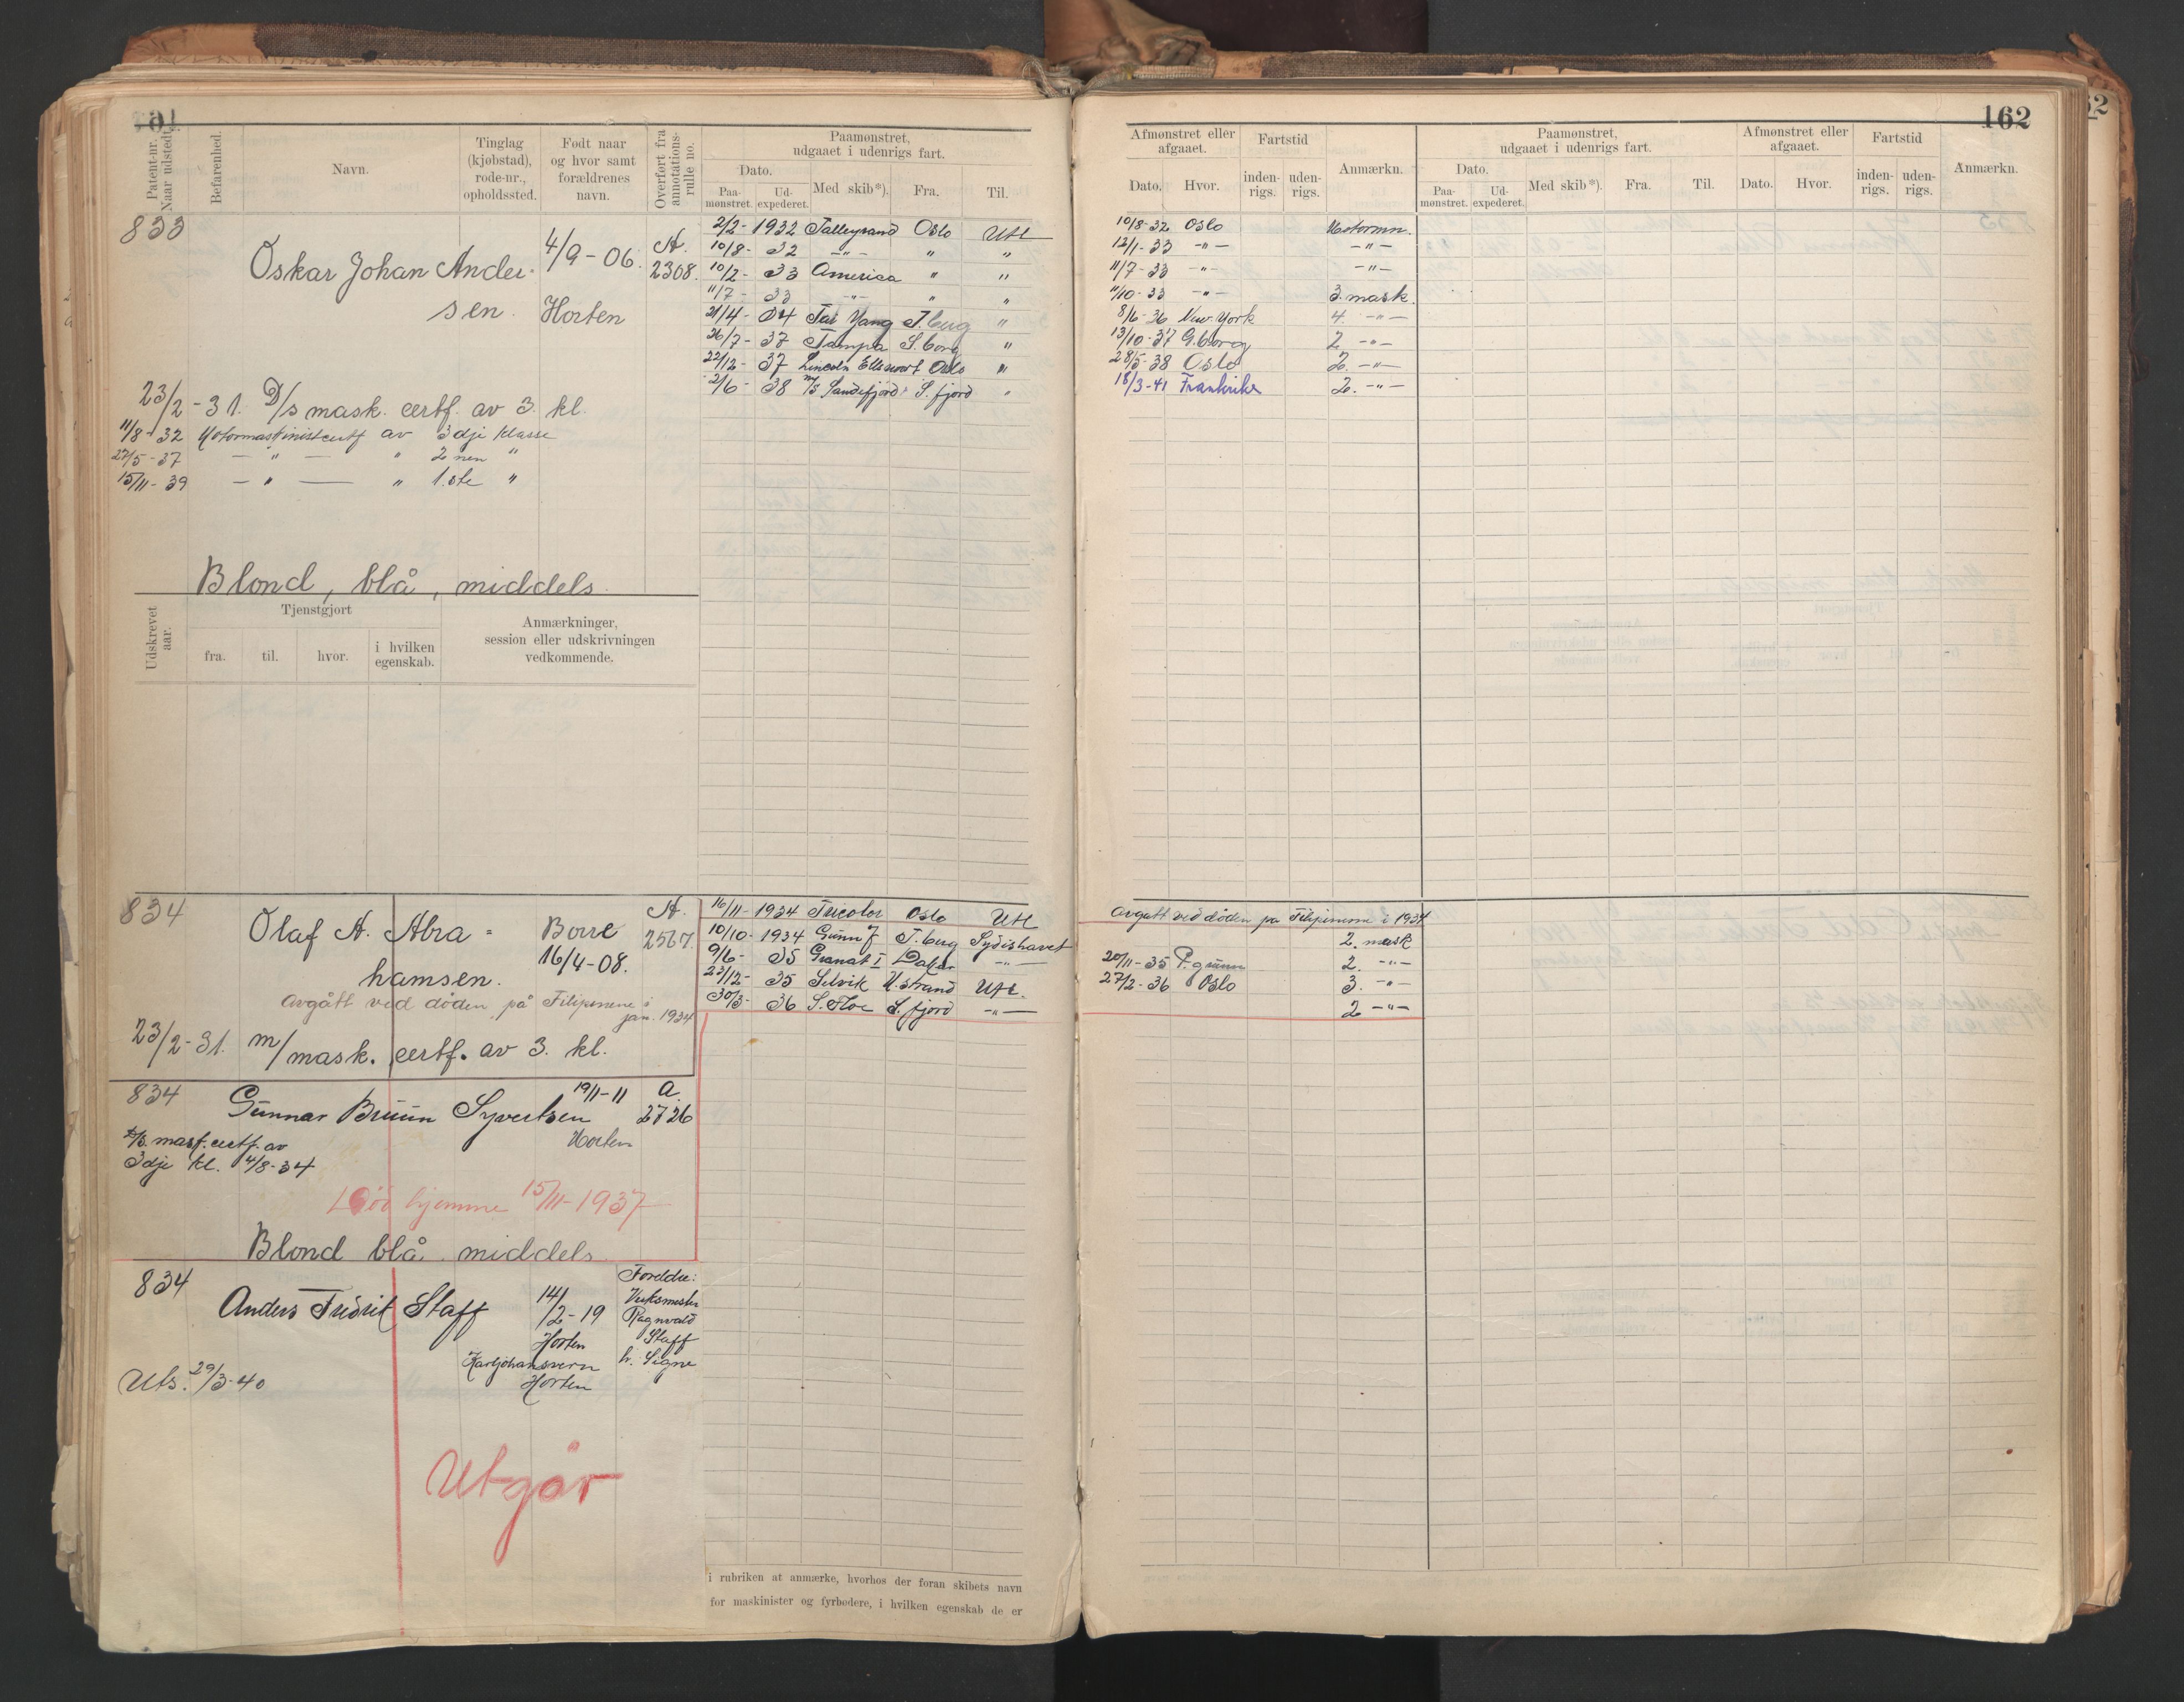 162
Patent-nr. Naar udstedt.
Befarenhed.
Navn.
Tinglag (kjøbstad), rode-nr., opholdssted.
Født naar og hvor samt forældrenes navn.
Overført fra annotations-rulle no.
Paamønstret, udgaaet i udenrigs fart.
Dato.
Paa-mønstret.
Ud-expederet.
Med skib*).
Fra.
Til.
Afmønstret eller afgaaet.
Dato.
Hvor.
Fartstid
inden-rigs.
uden-rigs.
Anmærkn.
Paamønstret, udgaaet i udenrigs fart.
Dato.
Paa-mønstret.
Ud-expederet.
Med skib*).
Fra.
Til.
Afmønstret eller afgaaet.
Dato.
Hvor.
Fartstid
inden-rigs.
uden-rigs.
Anmærkn.
833
Oskar Johan Ander-
sen.
4/9-06.
Horten
A.
2308.
23/2-31. D/s mask. certf. av 3. kl.
11/8-32 Motormaskinistcertf av 3dje klasse
27/5-37 —"— " 2nen "
15/11-39 —"— " 1.ste "
Blond, blå, middels.
2/2- 1932 Talleyrand Oslo Utl
10/8- 32 —"— " "
10/2- 33 America " "
11/7- 33 —"— " "
21/4- 34 Tai Yang T.berg "
26/7- 37 Tampa S.borg "
22/12- 37 Lincoln Ellswort Oslo "
2/6- 38 M/S Sandefjord S.fjord "
10/8-32 Oslo Motormn.
12/1-33 —"— —"—
11/7-33 —"— —"—
11/10-33 —"— 3. mask.
8/6-36 New York 4. —"—
13/10-37 G.borg 2 —"—
28/5-38 Oslo 2. —"—
18/3-41 Frankrike 2. —"—
Udskrevet aar.
Tjenstgjort
fra.
til.
hvor.
i hvilken egenskab.
Anmærkninger, session eller udskrivningen vedkommende.
834
Olaf A. Abra-
hamsen.
Borre
16/4-08.
A.
2567.
Avgått ved døden på Filipinene i
jan. 1934
23/2-31. m/mask. certf. av 3. kl.
16/11- 1934 Tricolor Oslo Utl
10/10- 1934 Gunn J T.berg Sydishavet
9/6- 35 Granat I Dakar —"—
23/12- 35 Selvik U.strand Utl.
30/3- 36 S. Floe S.fjord —"—
Avgått ved døden på Filipinene i 1934
2. mask
20/11-35 P.grunn 2. —"—
27/2-36 Oslo 3. —"—
2 —"—
834
Gunnar Bruun Syvertsen
19/1-11
Horten
A.
2726
D/S. mask. certf. av
3dje kl. 4/8-34
Død hjemme 15/11-1937
Blond blå middels.
834
Anders Fridrik Staff
14/2-19
Horten
Karljohansvern
Horten
Foreldre:
Verksmester
Ragnvald
Staff
h. Signe
Uts. 29/3-40
Utgår
i rubriken at anmærke, hvorhos der foran skibets navn
for maskinister og fyrbødere, i hvilken egenskab de er